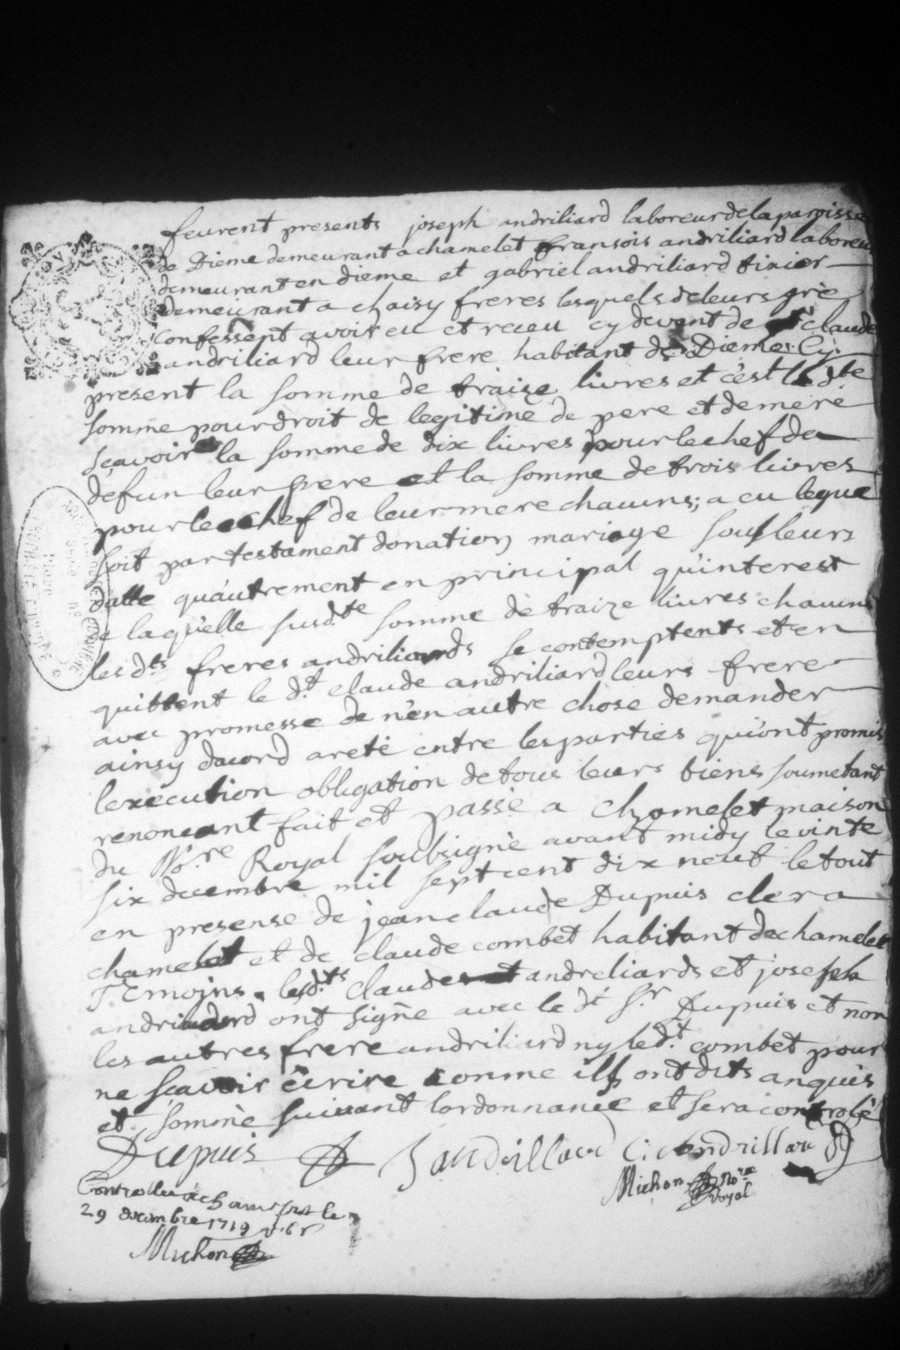 feurent presents joseph andriliard laboreur de la paroisse
de Dieme demeurant a chamelet fransois andriliard laboreur
demeurant en dieme et gabriel andriliard tixier
demeurant a chaisy freres lesquels de leurs grè
confessent avoir eu et receu cy devant de claude
andriliard leur frere habitant de Dieme Cy
present la somme de traize livres et c'est lad.te
somme pour droit de legitime de pere et de mere
sçavoir la somme de dix livres pour le chef de
defun leur pere et la somme de trois livres
pour le chef de leur mere chacuns; a eu leque
soit par testament donation mariage soulleurs
dalle qu'autrement en principal qu'interest
de laquelle susd.te somme de traize livres chacuns
les d.ts freres andriliards se contemptents et en
quittent le d.t claude andriliard leurs frere
avec promesse de n'en autre chose demander
ainsy dacord aretè entre les parties qu'ont promis
lexecution obligation de tous leurs biens soumetant
renonceant fait et passè a Chamelet maison
du No.re Royal soubsignè avant midy le vinte
six decembre mil sept cent dix neuf le tout
en presense de jean claude Dupuis clerc a
chamelet et de claude combet habitant de chamelet
Temoins lesd.ts claude et andreliards et joseph
andriliard ont signè avec le d.t S.r Dupuis et non
les autres frere andriliard ny led.t combet pour
ne sçavoir ècrire comme ills ont dits anquis
et sommè suivant lordonnance et sera controlè
Dupuis J andrillard C Andrillard
Michon No.re Royal
Controllé à Chamelet le
29 decembre 1719
Michon